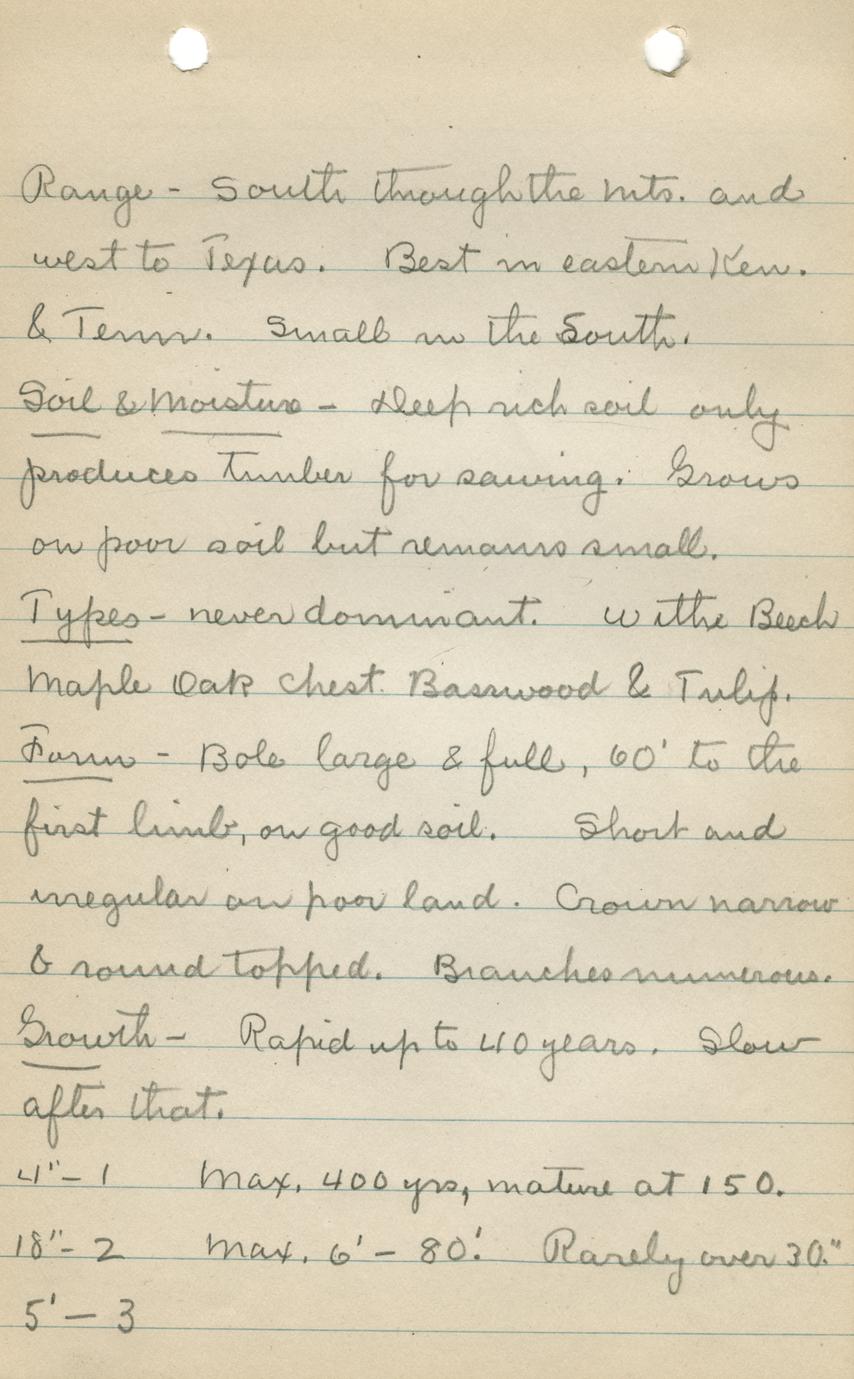 Range - South through the mts. and
west to Texas. Best in eastern Ken.
& Tenn. Small in the South.
Soil & Moisture - Deep rich soil only
produces timber for sawing. Grows
on poor soil but remains small.
Types - never dominant. withe Beech
Maple Oak Chest. Basswood & Tulip.
Form - Bole large & full, 60' to the
first limb, on good soil. Short and
irregular on poor land. Crown narrow
& round topped. Branches numerous.
Growth - Rapid up to 40 years. Slow
after that.
4" - 1 Max. 400 yrs, mature at 150.
18" - 2 Max. 6' - 80'. Rarely over 30."
5' - 3